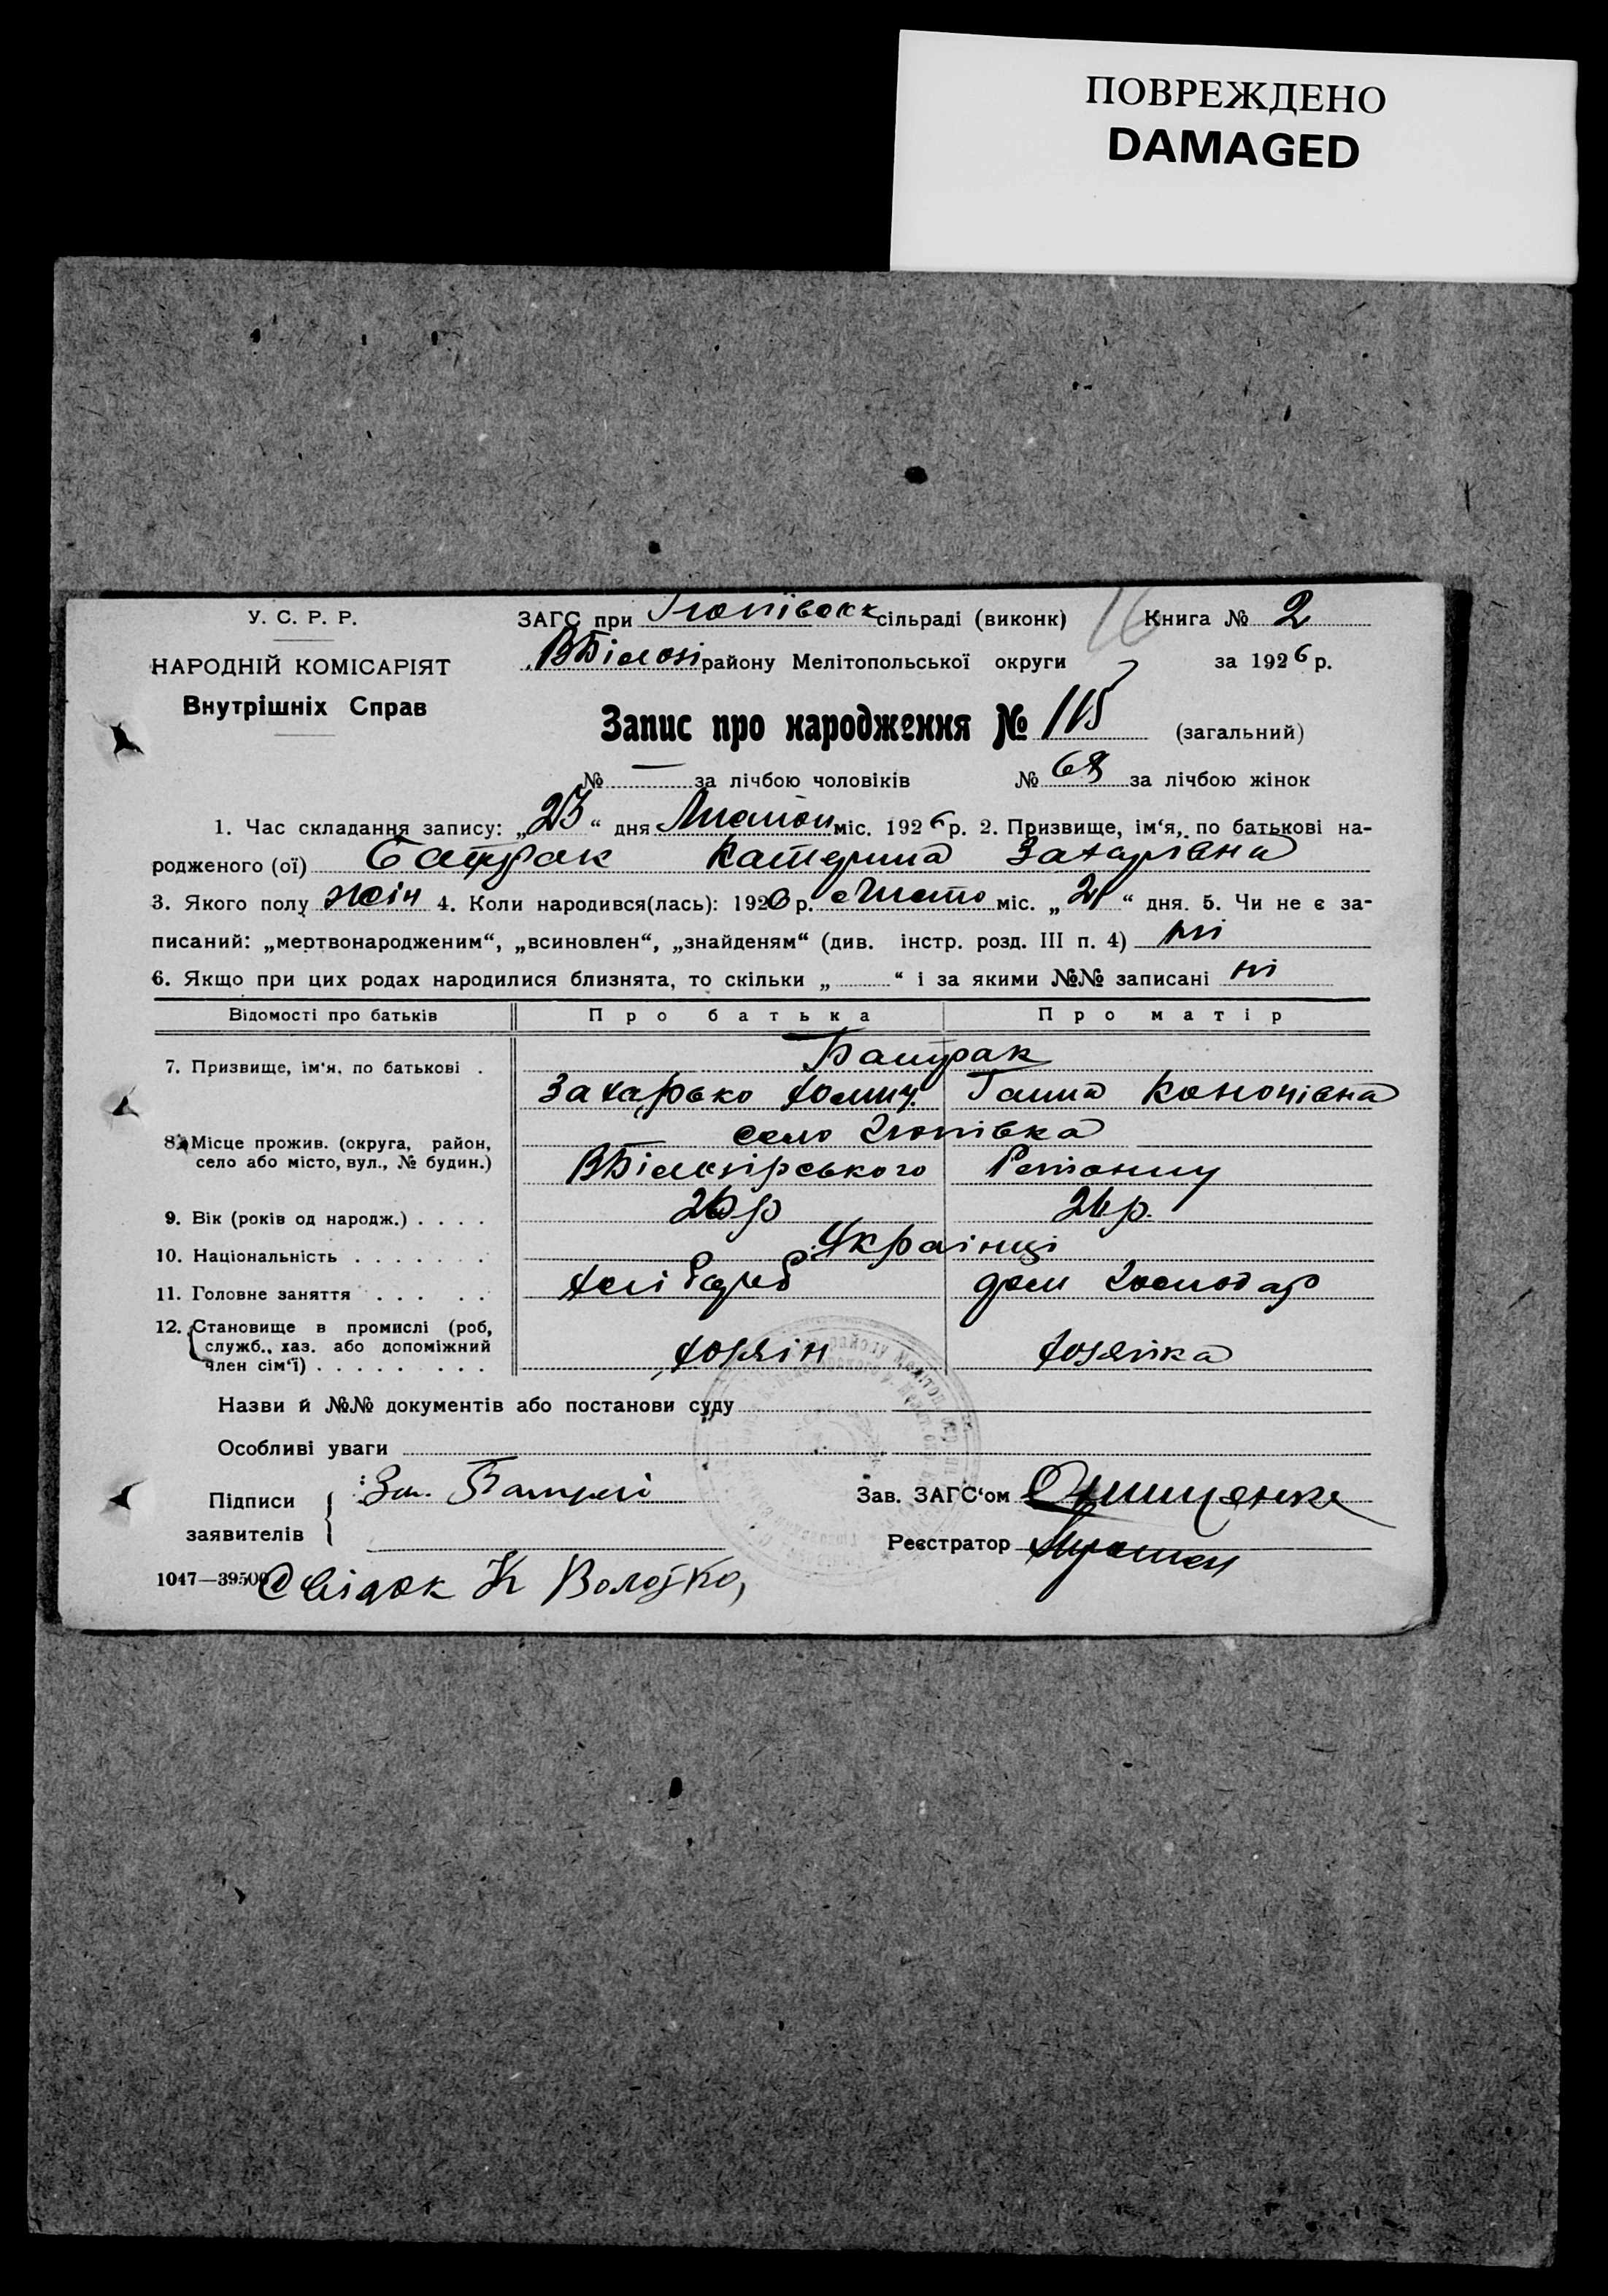 ПОВРЕЖДЕНО
DAMAGED
У. С. Р. Р.
НАРОДНІЙ КОМІСАРІЯТ
Внутрішніх Справ
ЗАГС при сільраді (виконк) 16 Книга № 2
ВБілозі району Мелітопольської округи за 1926 р.
Запис про народження № 115 (загальний)
№ — за лічбою чоловіків № 68 за лічбою жінок
1. Час складання запису: „23“ дня міс. 1926 р. 2. Призвище, ім‘я, по батькові на-
родженого (ої) Батрак Катерина Захарівна
3. Якого полу жін 4. Коли народився(лась): 1926 р. міс. „21“ дня. 5. Чи не є за-
писаний: „мертвонародженим“, „всиновлен“, „знайденям“ (див. інстр. розд. III п. 4) ні
6. Якщо при цих родах народилися близнята, то скільки „ “ і за якими №№ записані ні
Відомості про батьків Про батька Про матір
7. Призвище, ім‘я, по батькові . Батрак
Захарько Хомич. Ганна Кононівна
8. Місце прожив. (округа, район, село або місто, вул., № будин.) село
ВБілозірського Району
9. Вік (років од народж.) . . . . 26 р 26 р.
10. Національність . . . . . . . Українці
11. Головне заняття . . . . . Хлібороб дом господар
12. Становище в промислі (роб, служб., хаз. або допоміжний член сім‘ї) . . . . . . . . хозяін хозяйка
Назви й №№ документів або постанови суду
Особливі уваги
Підписи заявителів
Зав. ЗАГС‘ом
Реєстратор
1047—39500 Свідок К